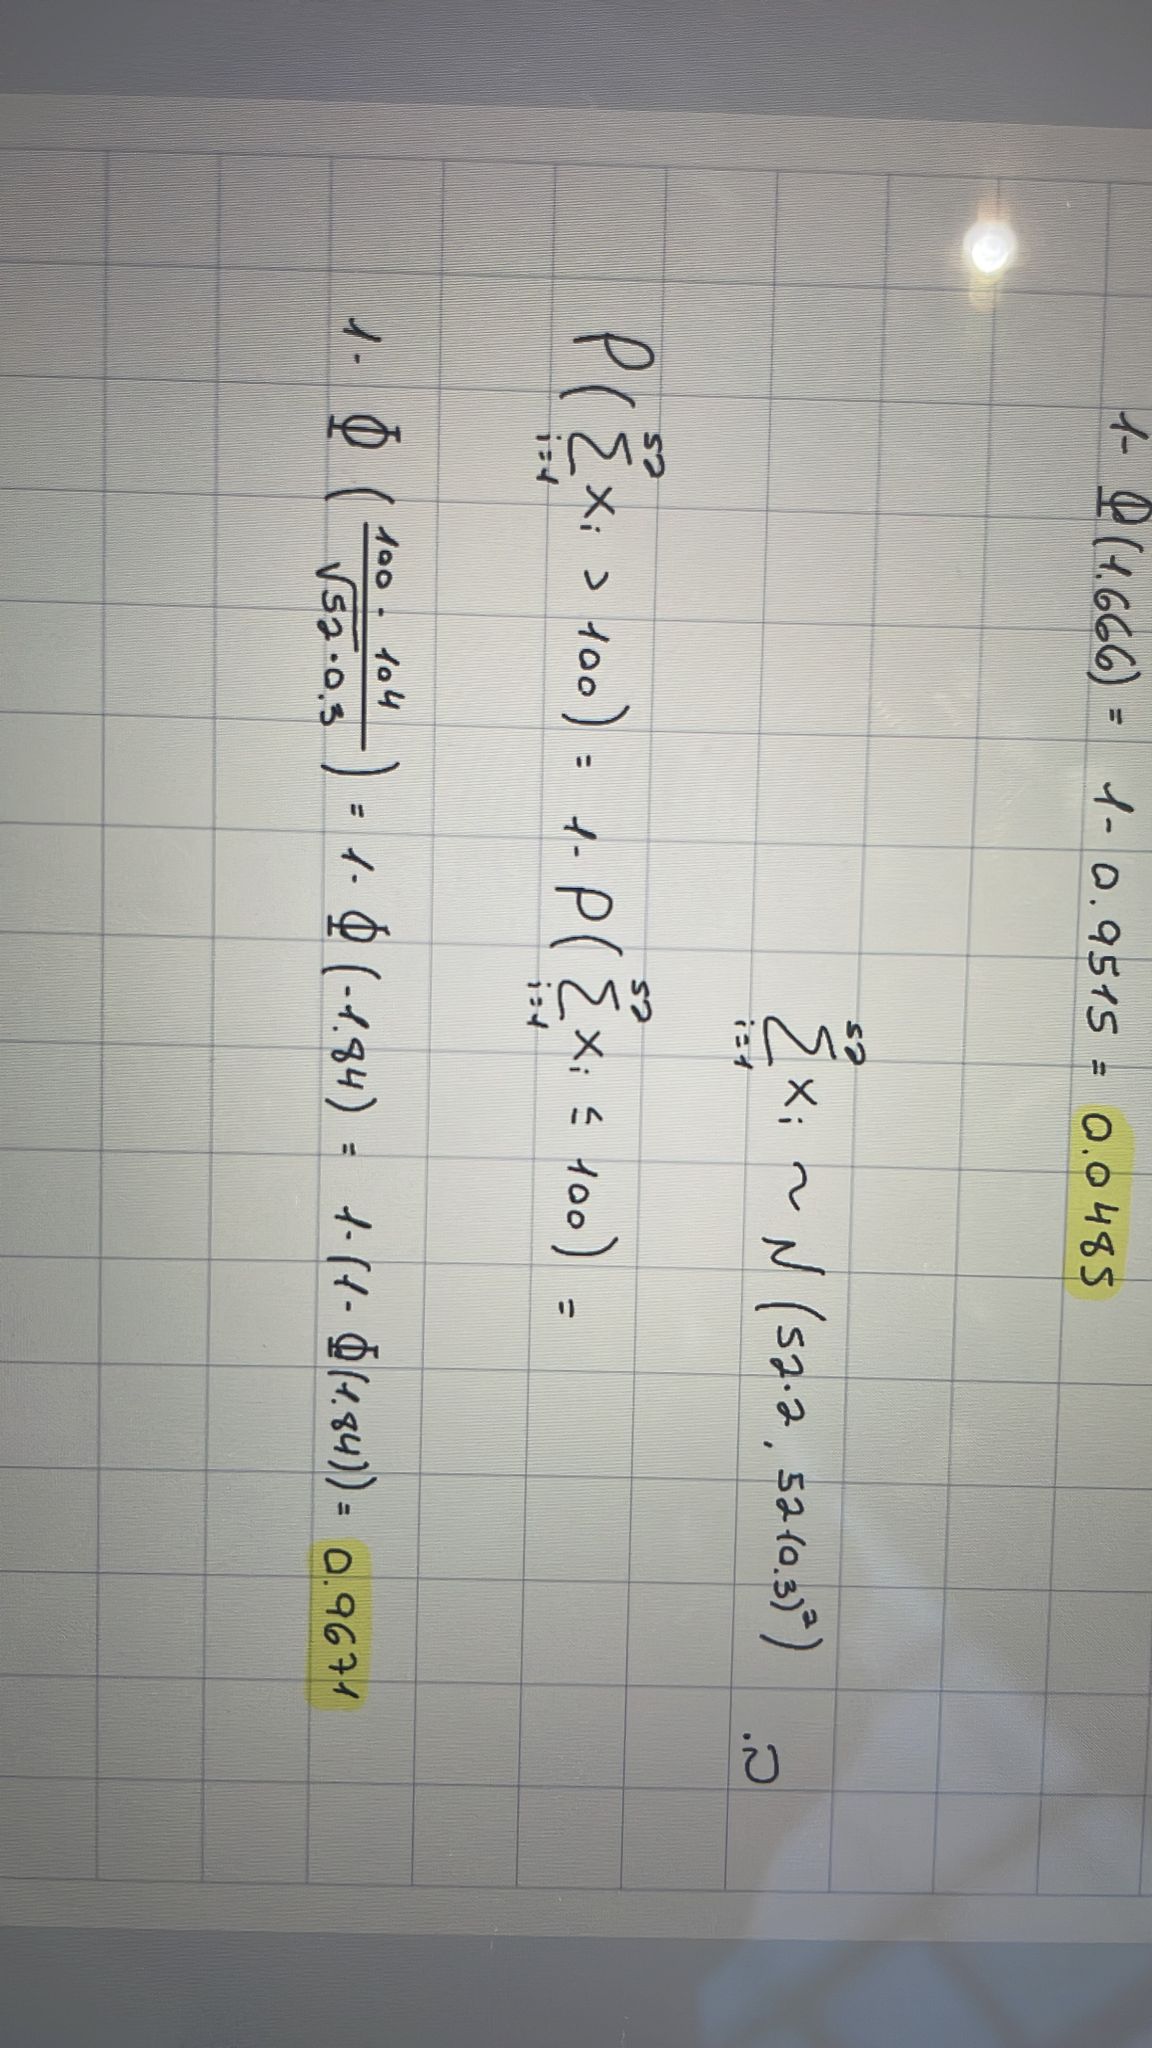 1- Φ(1.666) = 1- 0.9515 = 0.0485
ב. ∑_{i=1}^{52} x_i ~ N (52·2, 52(0.3)²)
P( ∑_{i=1}^{52} x_i > 100) = 1- P( ∑_{i=1}^{52} x_i ≤ 100) =
1- Φ ( (100 - 104) / (√52·0.3) ) = 1- Φ (-1.84) = 1-(1- Φ(1.84)) = 0.9671